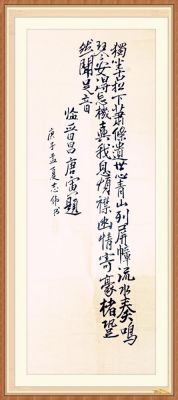 獨坐古松下蕭條遺世心青山列屏幛流水奏鳴
琴安得忘機真我息煩襟幽情寄豪楮跫
然聞足音
臨晉昌唐寅題
庚子孟夏志偉书